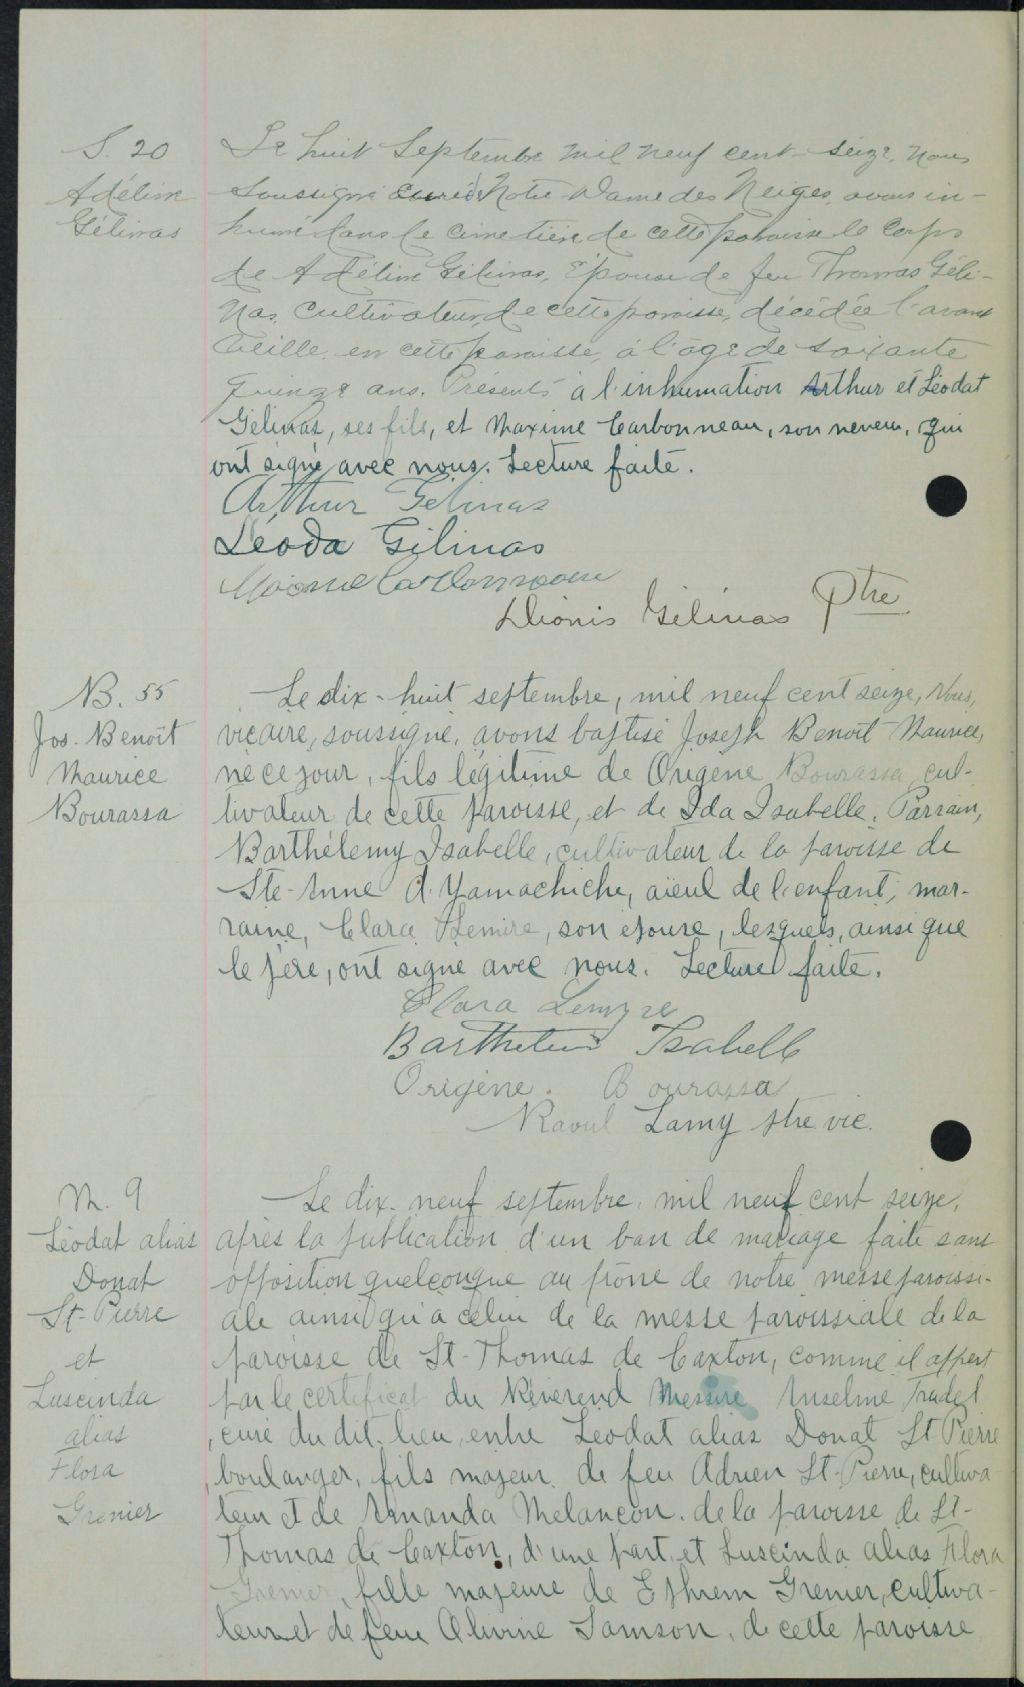 S. 20
Adéline
Gélinas
Le huit Septembre mil neuf cent seize, nous
soussigné curé de Notre Dame des Neiges, avons in-
humé dans le cimetière de cette paroisse le corps
de Adéline Gélinas, Épouse de feu Thomas Géli-
nas, cultivateur, de cette paroisse, décédée l'avant
veille, en cette paroisse, à l'âge de soixante
quinze ans. Présents à l'inhumation Arthur et Léodat
Gélinas, ses fils, et Maxime Carbonneau, son neveu, qui
ont signé avec nous. Lecture faite.
Arthur Gélinas
Léoda Gélinas
Maxime Carbonneau
Dionis Gélinas Ptre
B. 55
Jos. Benoît
Maurice
Bourassa
Le dix-huit septembre, mil neuf cent seize, Nous,
vicaire, soussigné, avons baptisé Joseph Benoît Maurice,
né ce jour, fils légitime de Origène Bourassa, cul-
tivateur de cette paroisse, et de Ida Isabelle. Parrain,
Barthélemy Isabelle, cultivateur de la paroisse de
Ste-Anne d'Yamachiche, aïeul de l'enfant, mar-
raine, Clara Lemire, son épouse, lesquels, ainsi que
le père, ont signé avec nous. Lecture faite.
Clara Lemyre
Isabelle
Origène Bourassa
Raoul Lamy ptre vic.
M. 9
Léodat alias
Donat
St-Pierre
et
Luscinda
alias
Flora
Grenier
Le dix-neuf septembre, mil neuf cent seize,
après la publication d'un ban de mariage faite sans
opposition quelconque au prône de notre messe paroissi-
ale ainsi qu'à celui de la messe paroissiale de la
paroisse de St-Thomas de Caxton, comme il appert
par le certificat du Révérend Messire Anselme Trudel
, curé du dit lieu, entre Léodat alias Donat St Pierre
, boulanger, fils majeur de feu Adrien St-Pierre, cultiva
teur et de Amanda Melançon, de la paroisse de St-
Thomas de Caxton, d'une part, et Luscinda alias Flora
Grenier, fille majeure de Ephrem Grenier, cultiva-
teur et de feue Olivine Samson, de cette paroisse